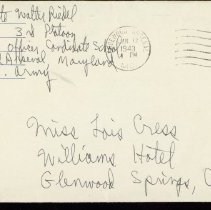 Walter Riedel
3rd Platoon
Officer Candidate School
Arsenal Maryland
Army
1943
PM
Miss Lois Cress
Williams Hotel
Glenwood Springs, C